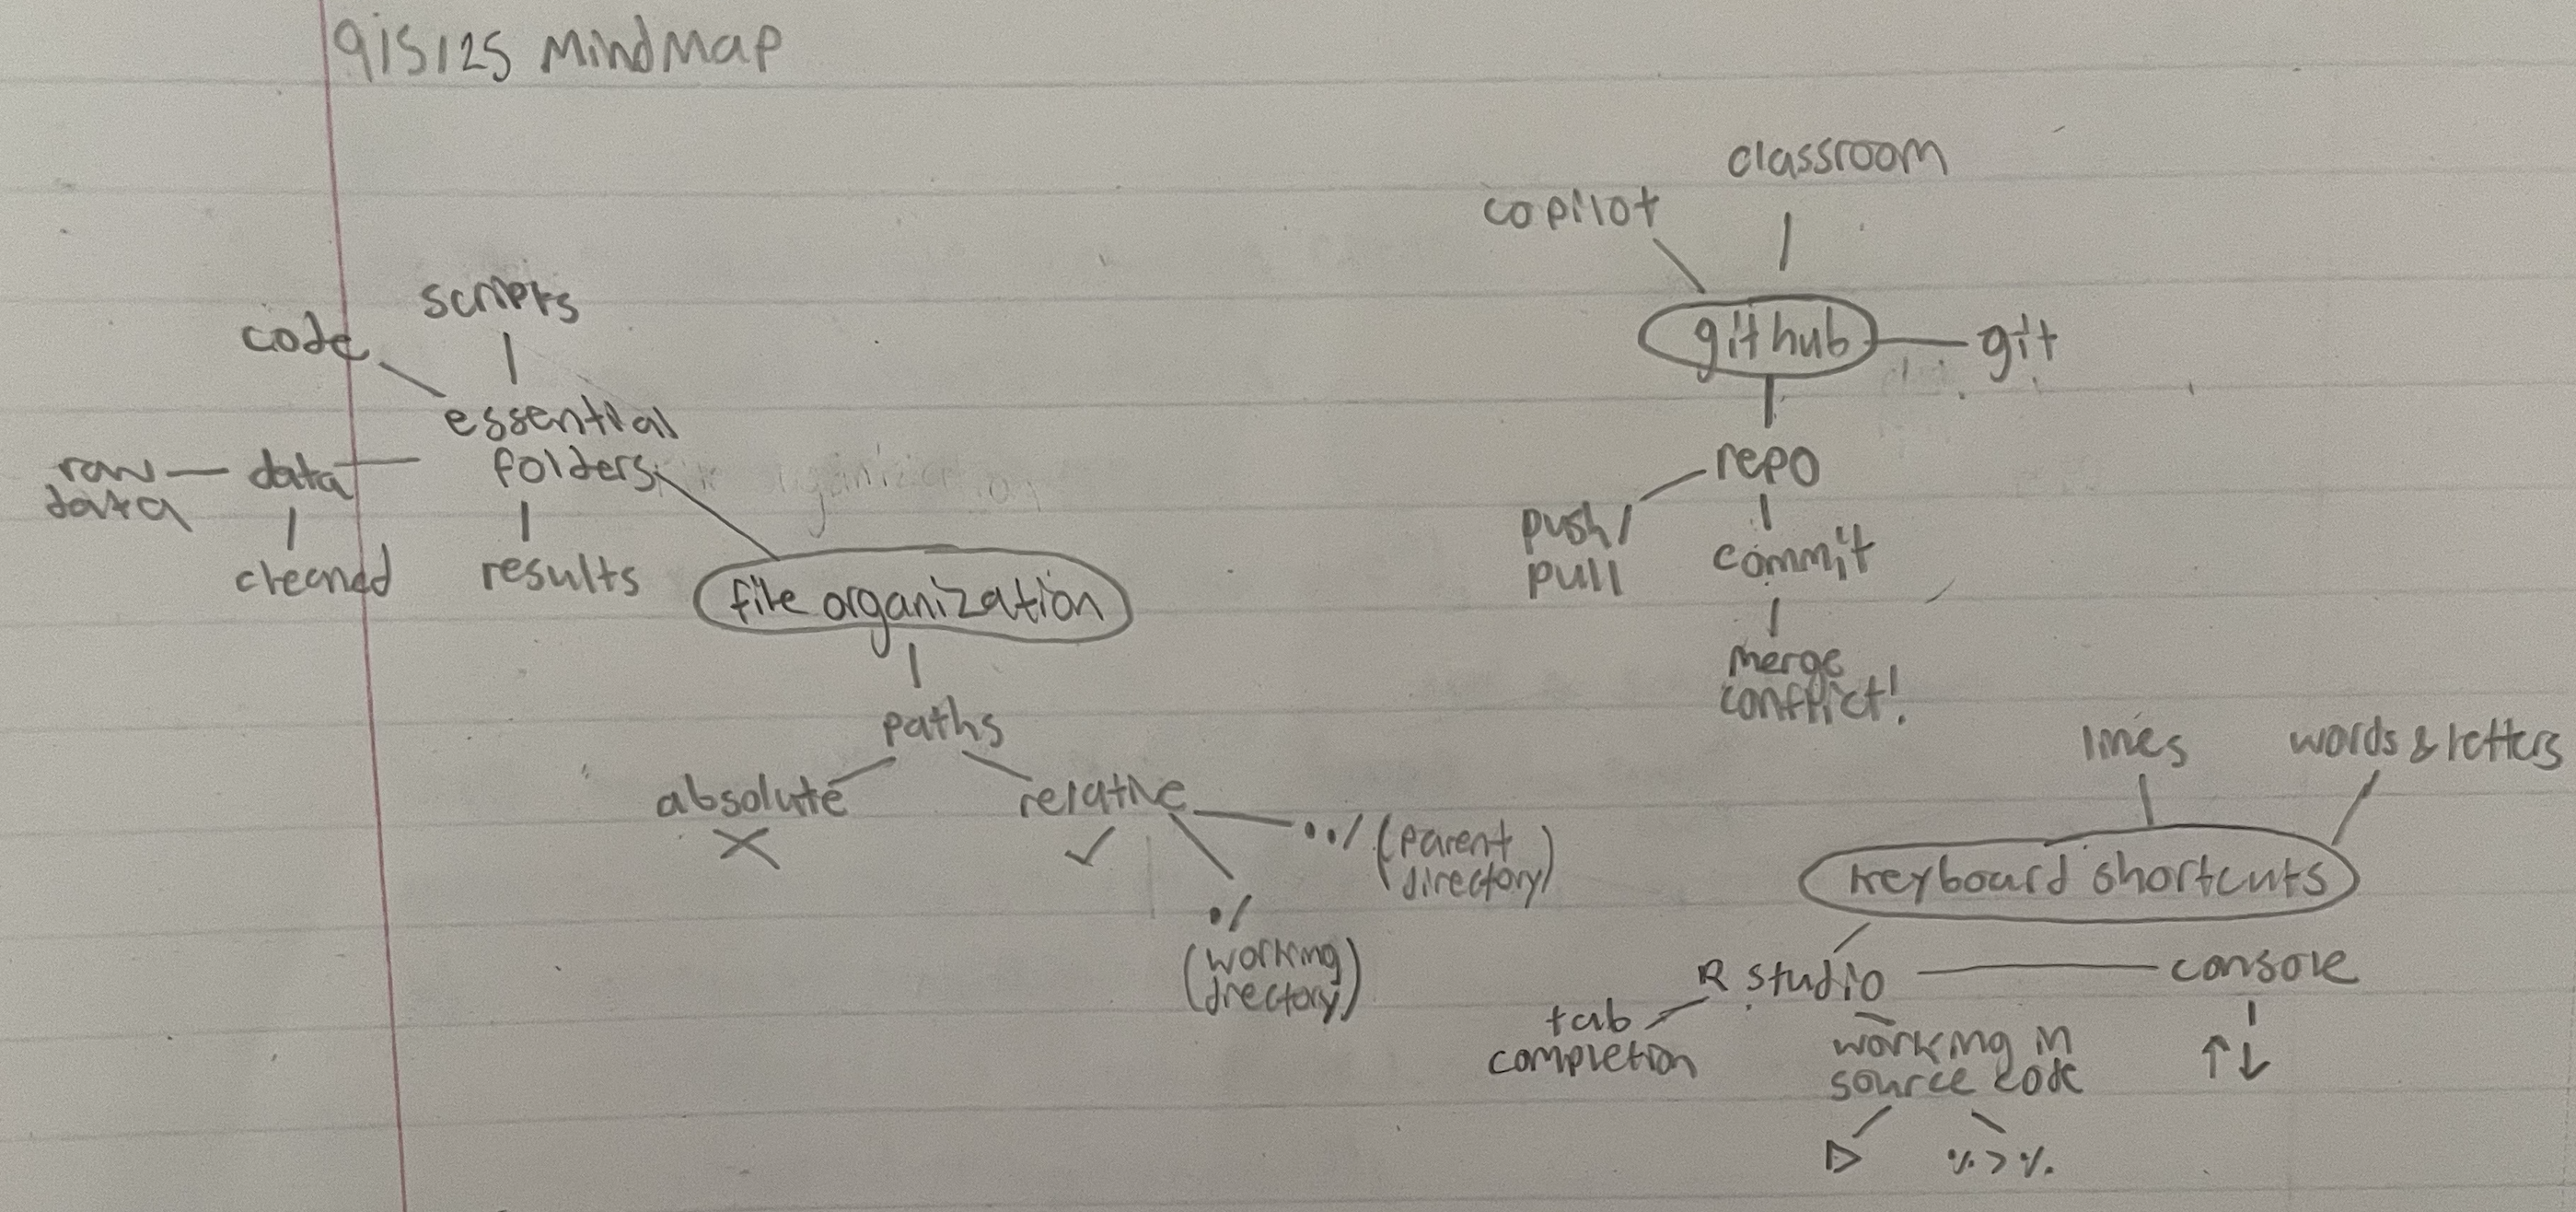 9/5/25 Mindmap
classroom
copilot
github
git
repo
push/
pull
commit
merge
conflict!
scripts
code
essential
folders
raw
data
data
cleaned
results
file organization
paths
absolute
X
relative
✓
../ (parent
directory)
./
(working
directory)
lines
words & letters
keyboard shortcuts
R studio
console
↑↓
tab
completion
working in
source code
▷
%>%